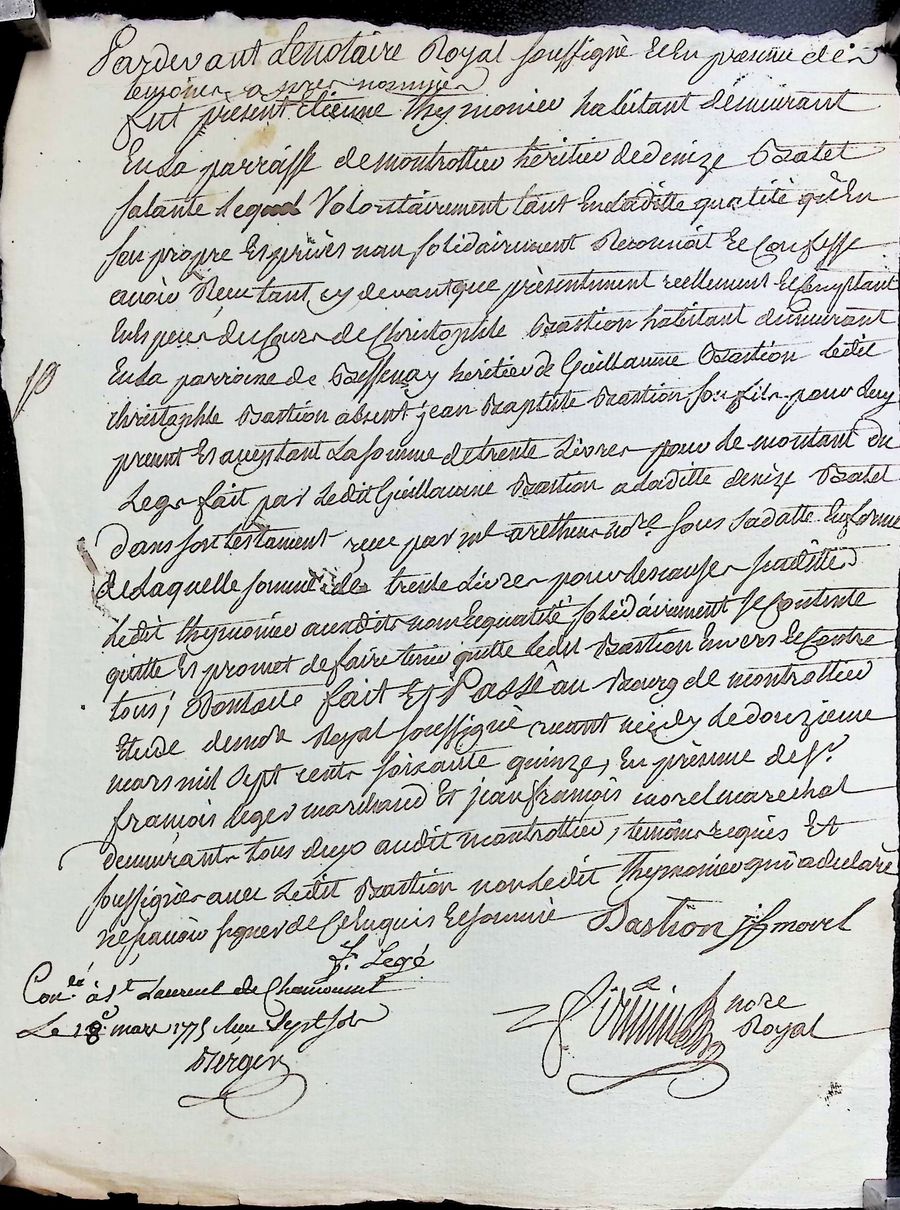 Pardevant Le notaire Royal soussigné Et En presence des
temoins apres nommés
fut présent Etienne thymonier habitant démeurant
En La parroisse de montrottier héritier de denize Batet
Salante Lequel Volontairement tant En Laditte qualité qu'En
son propre Et privés nom solidairement Reconnait Et Confesse
avoir Receu tant cy devant que présentement reellement Et Comptant
En Especes du Cours de Christophle Bastion habitant démeurant
En La parroisse de Bessenay héritier de Guillaume Bastion Ledit
christophle Bastion absent jean Baptiste Bastion son fils pour Luy
present Et acceptant La somme de trente Livres pour Le montant du
Legs fait par Ledit Guillaume Bastion a Laditte denize Batet
dans son testament reçu par me no.re Sous Sa datte En forme
de Laquelle somme de trente Livres pour Les causes susdittes
Ledit thymonier auxdits nom Et qualité solidairement Se Contente
quitte Et promet de faire tenir quitte Ledit Bastion Envers Et Contre
tous; Dont acte fait Et Passé au Bourg de montrottier
Etude du no.re Royal soussigné avant midy Le douzieme
mars mil sept cents soixante quinze, En présence de sr.
françois Leger marchand Et jean françois morel marechal
demeurants tous deux audit montrottier, temoins requis Et
soussignés avec Ledit Bastion non Ledit thymonier qui a declaré
ne sçavoir signer de Ce Enquis Et sommé Bastion jf morel
fr. Legé
Con.lé à St Laurent de Chamousset
Le 18e mars 1775 Reçu Sept sols
Berger
nore
Royal